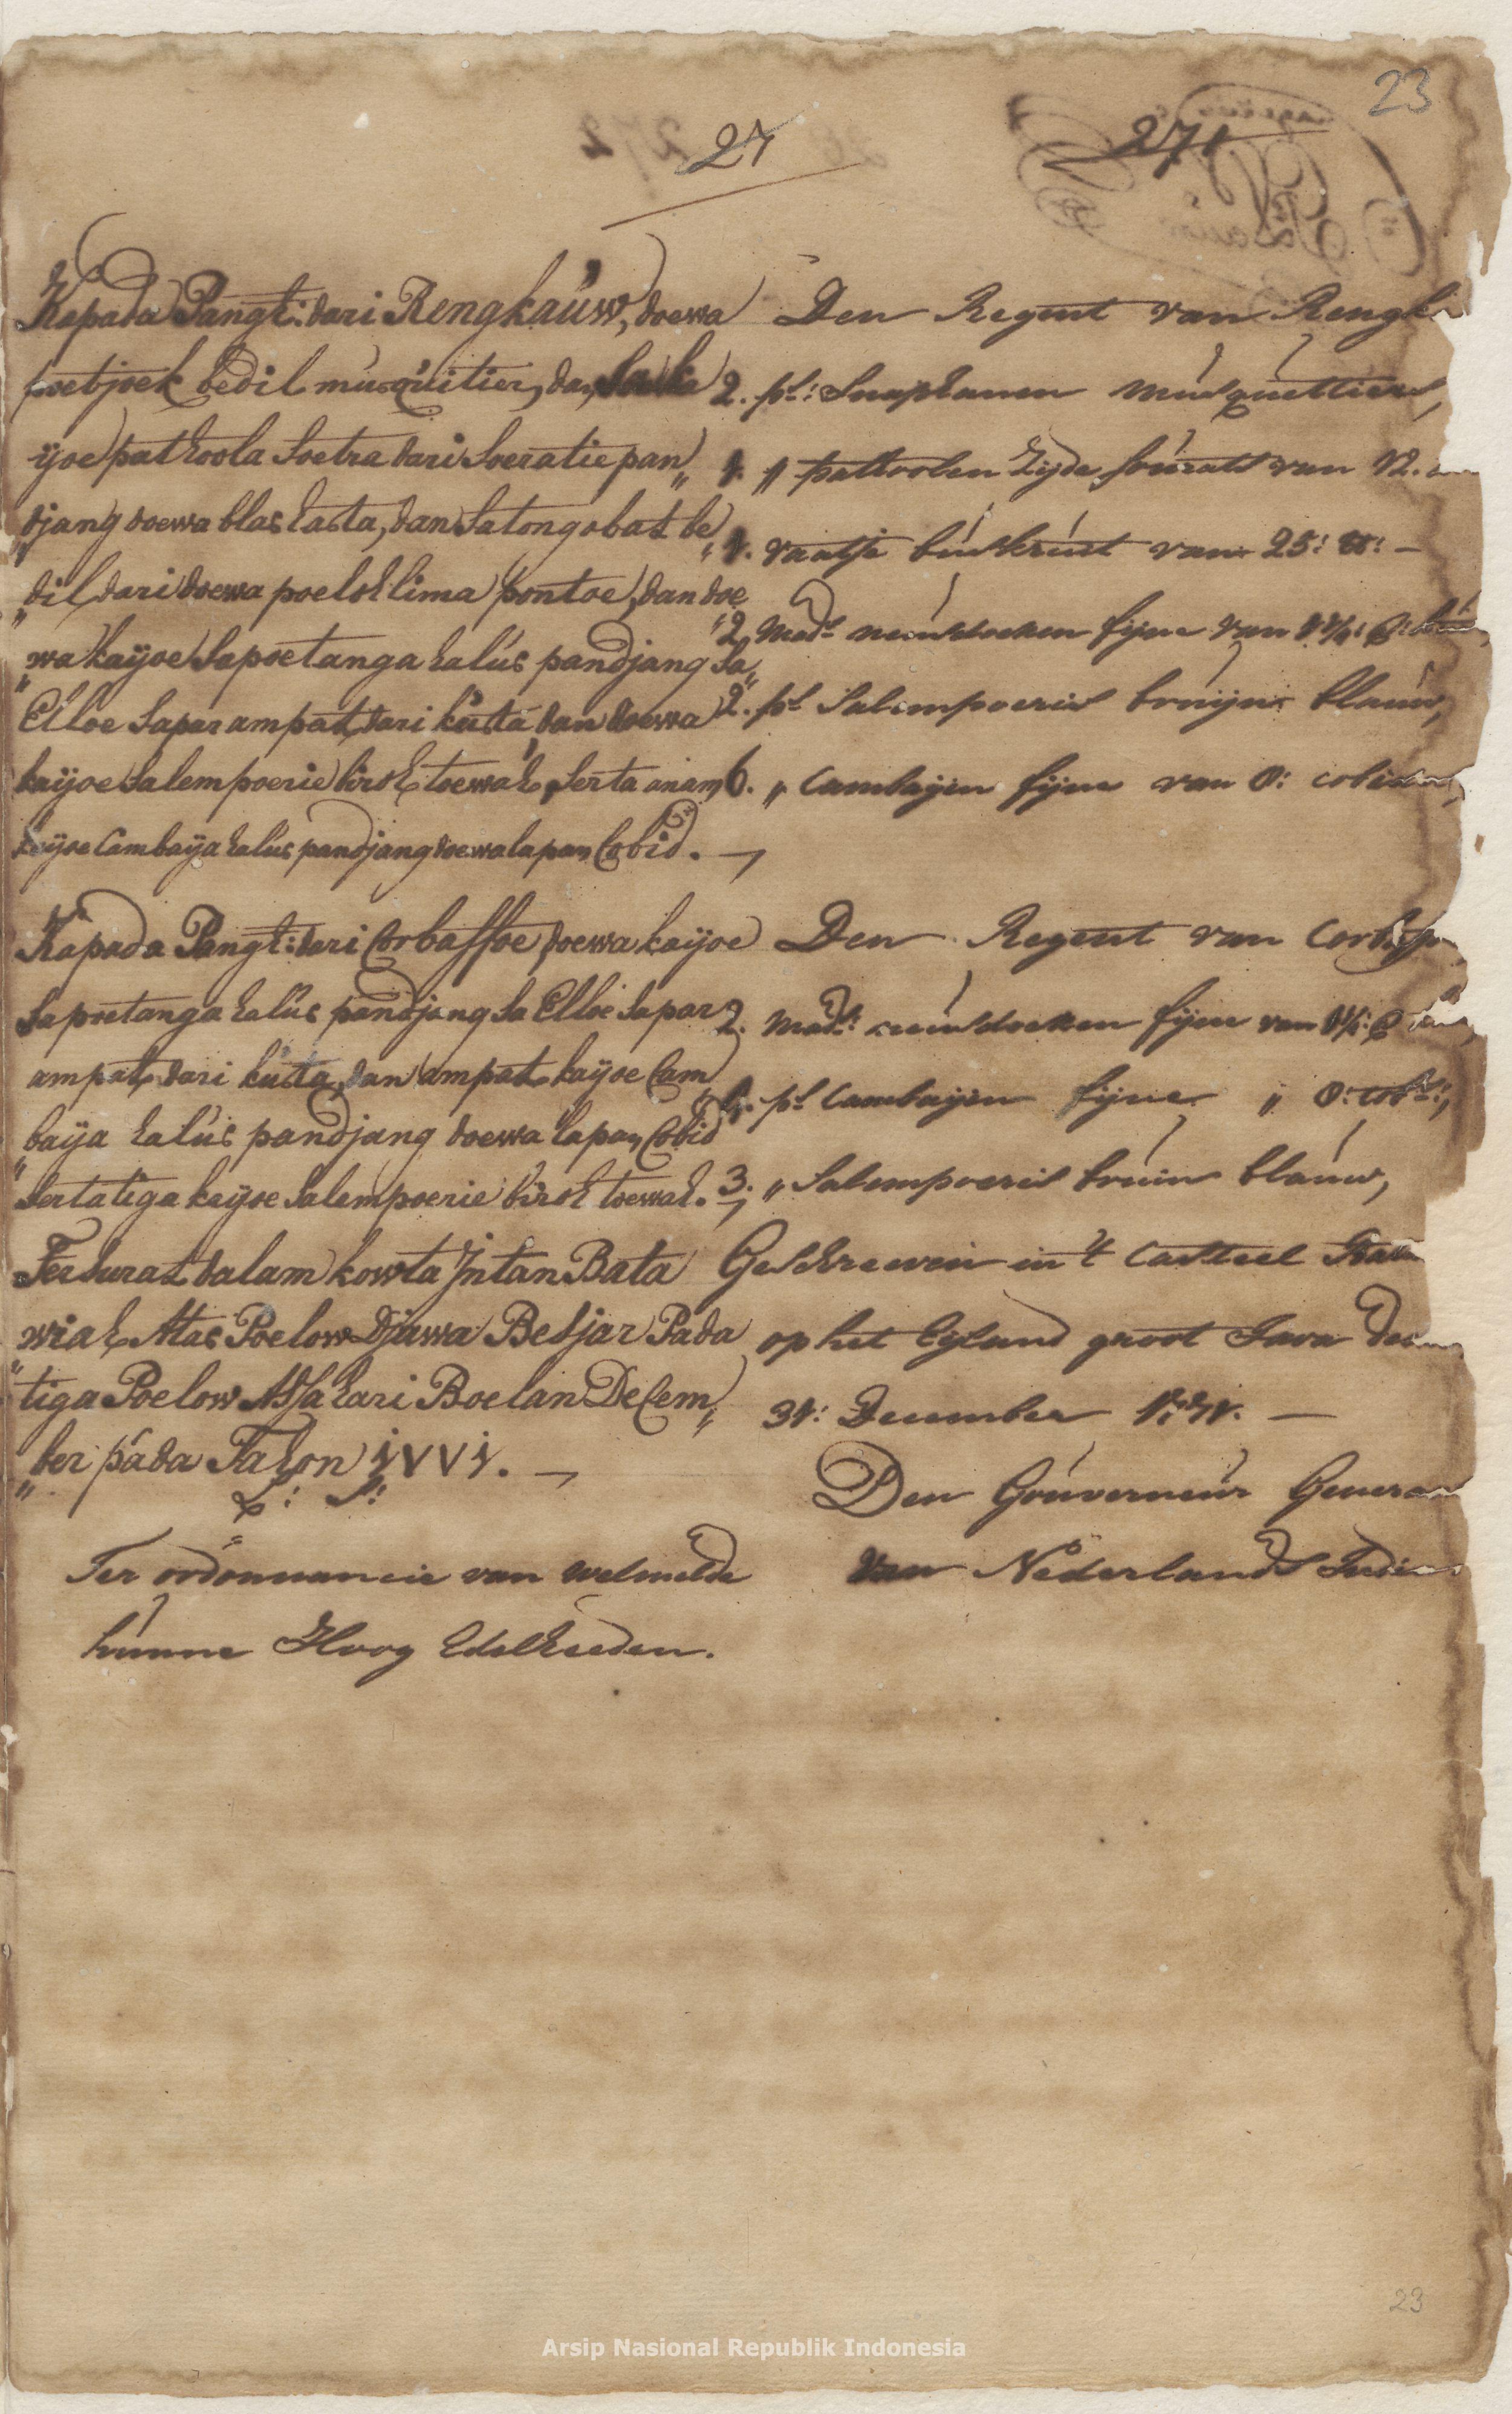 23
27
271
Kapada Pangt: dari Rengkauw, doewa
poetjoek bedil musquitier, dan Sa ka
ijoe pathoola Soetra dari Soeratie pan„
„djang doewa blas hasta, dan Satong obat be„
„dil dari doewa poeloh lima pontoe, dan doe„
„wa kaijoe Sapoetanga halus pandjang Sa„
Elloe Sapar ampat, dari kusta, dan doewa
kaijoe Salempoerie biroh toewah, Serta anam
kaijoe Cambaija halus pandjang doewalapan Cobid. —
Kapada Pangt: dari Corbaffoe, doewa kaijoe
Sapoetanga halus pandjang Sa Elloe Sapar
ampat, dari kusta, dan ampat kaijoe Cam„
„baija halus pandjang doewa lapan Cobid
Serta tiga kaijoe Salempoerie biroh toewah. —
Tersurat dalam kowta Intan Bata
„wiah Atas Poelow Djawa Besjar Pada
tiga Poelow Assa hari Boelan December„
„ber pada Tahon
L: S:
Ter ordonnancie van welmelde
hunne Hoog Edelheeden.
Den Regent van Rengk
2. ps: Snaphanen musquettiers,
1. „ pattoolen Zijde souratt van 12.
1. vaatje buskruit van 25: lb: —
2. mads neusdoeken fijne van 1 1/4:
2. ps Salempoeris bruijn blauw,
6. „ Cambaijen fijne van 8: cobidos
Den Regent van
2. mads: neusdoeken fijne van 1 1/4:
4. ps Cambaijen fijne „ 8: cobs:,
3. „ Salempoeris bruin blauw,
Geschreeven in 't Casteel
op het Eyland groot Java den
31: December 1771. —
Den Gouverneur Genera
van Nederlands Indie
23
Arsip Nasional Republik Indonesia